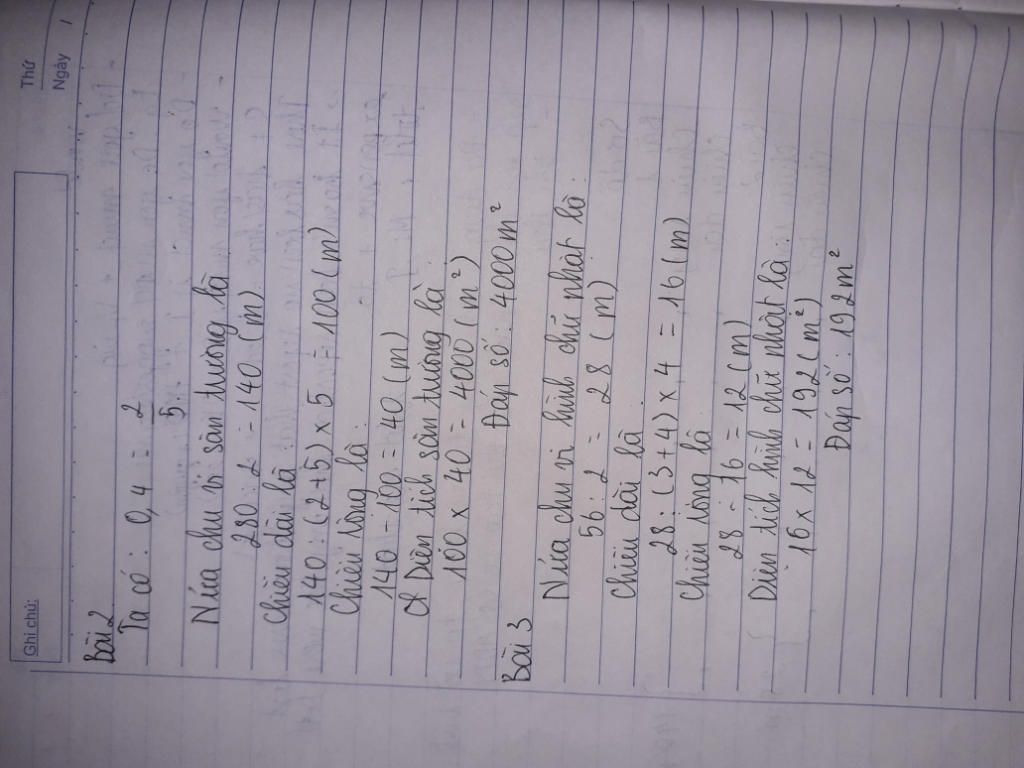 Thứ
Ngày /
Ghi chú:
Bài 2
Ta có : 0,4 = 2/5.
Nửa chu vi sân trường là
280 : 2 = 140 (m)
Chiều dài là :
140 : (2+5) × 5 = 100 (m)
Chiều rộng là :
140 - 100 = 40 (m)
Diện tích sân trường là
100 × 40 = 4000 (m²)
Đáp số : 4000 m²
Bài 3
Nửa chu vi hình chữ nhật là :
56 : 2 = 28 (m)
Chiều dài là
28 : (3+4) × 4 = 16 (m)
Chiều rộng là
28 - 16 = 12 (m)
Diện tích hình chữ nhật là :
16 × 12 = 192 (m²)
Đáp số : 192 m²